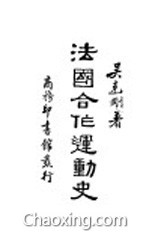 吳克剛著
法國合作運動史
商務印書館發行
Chaoxing.com